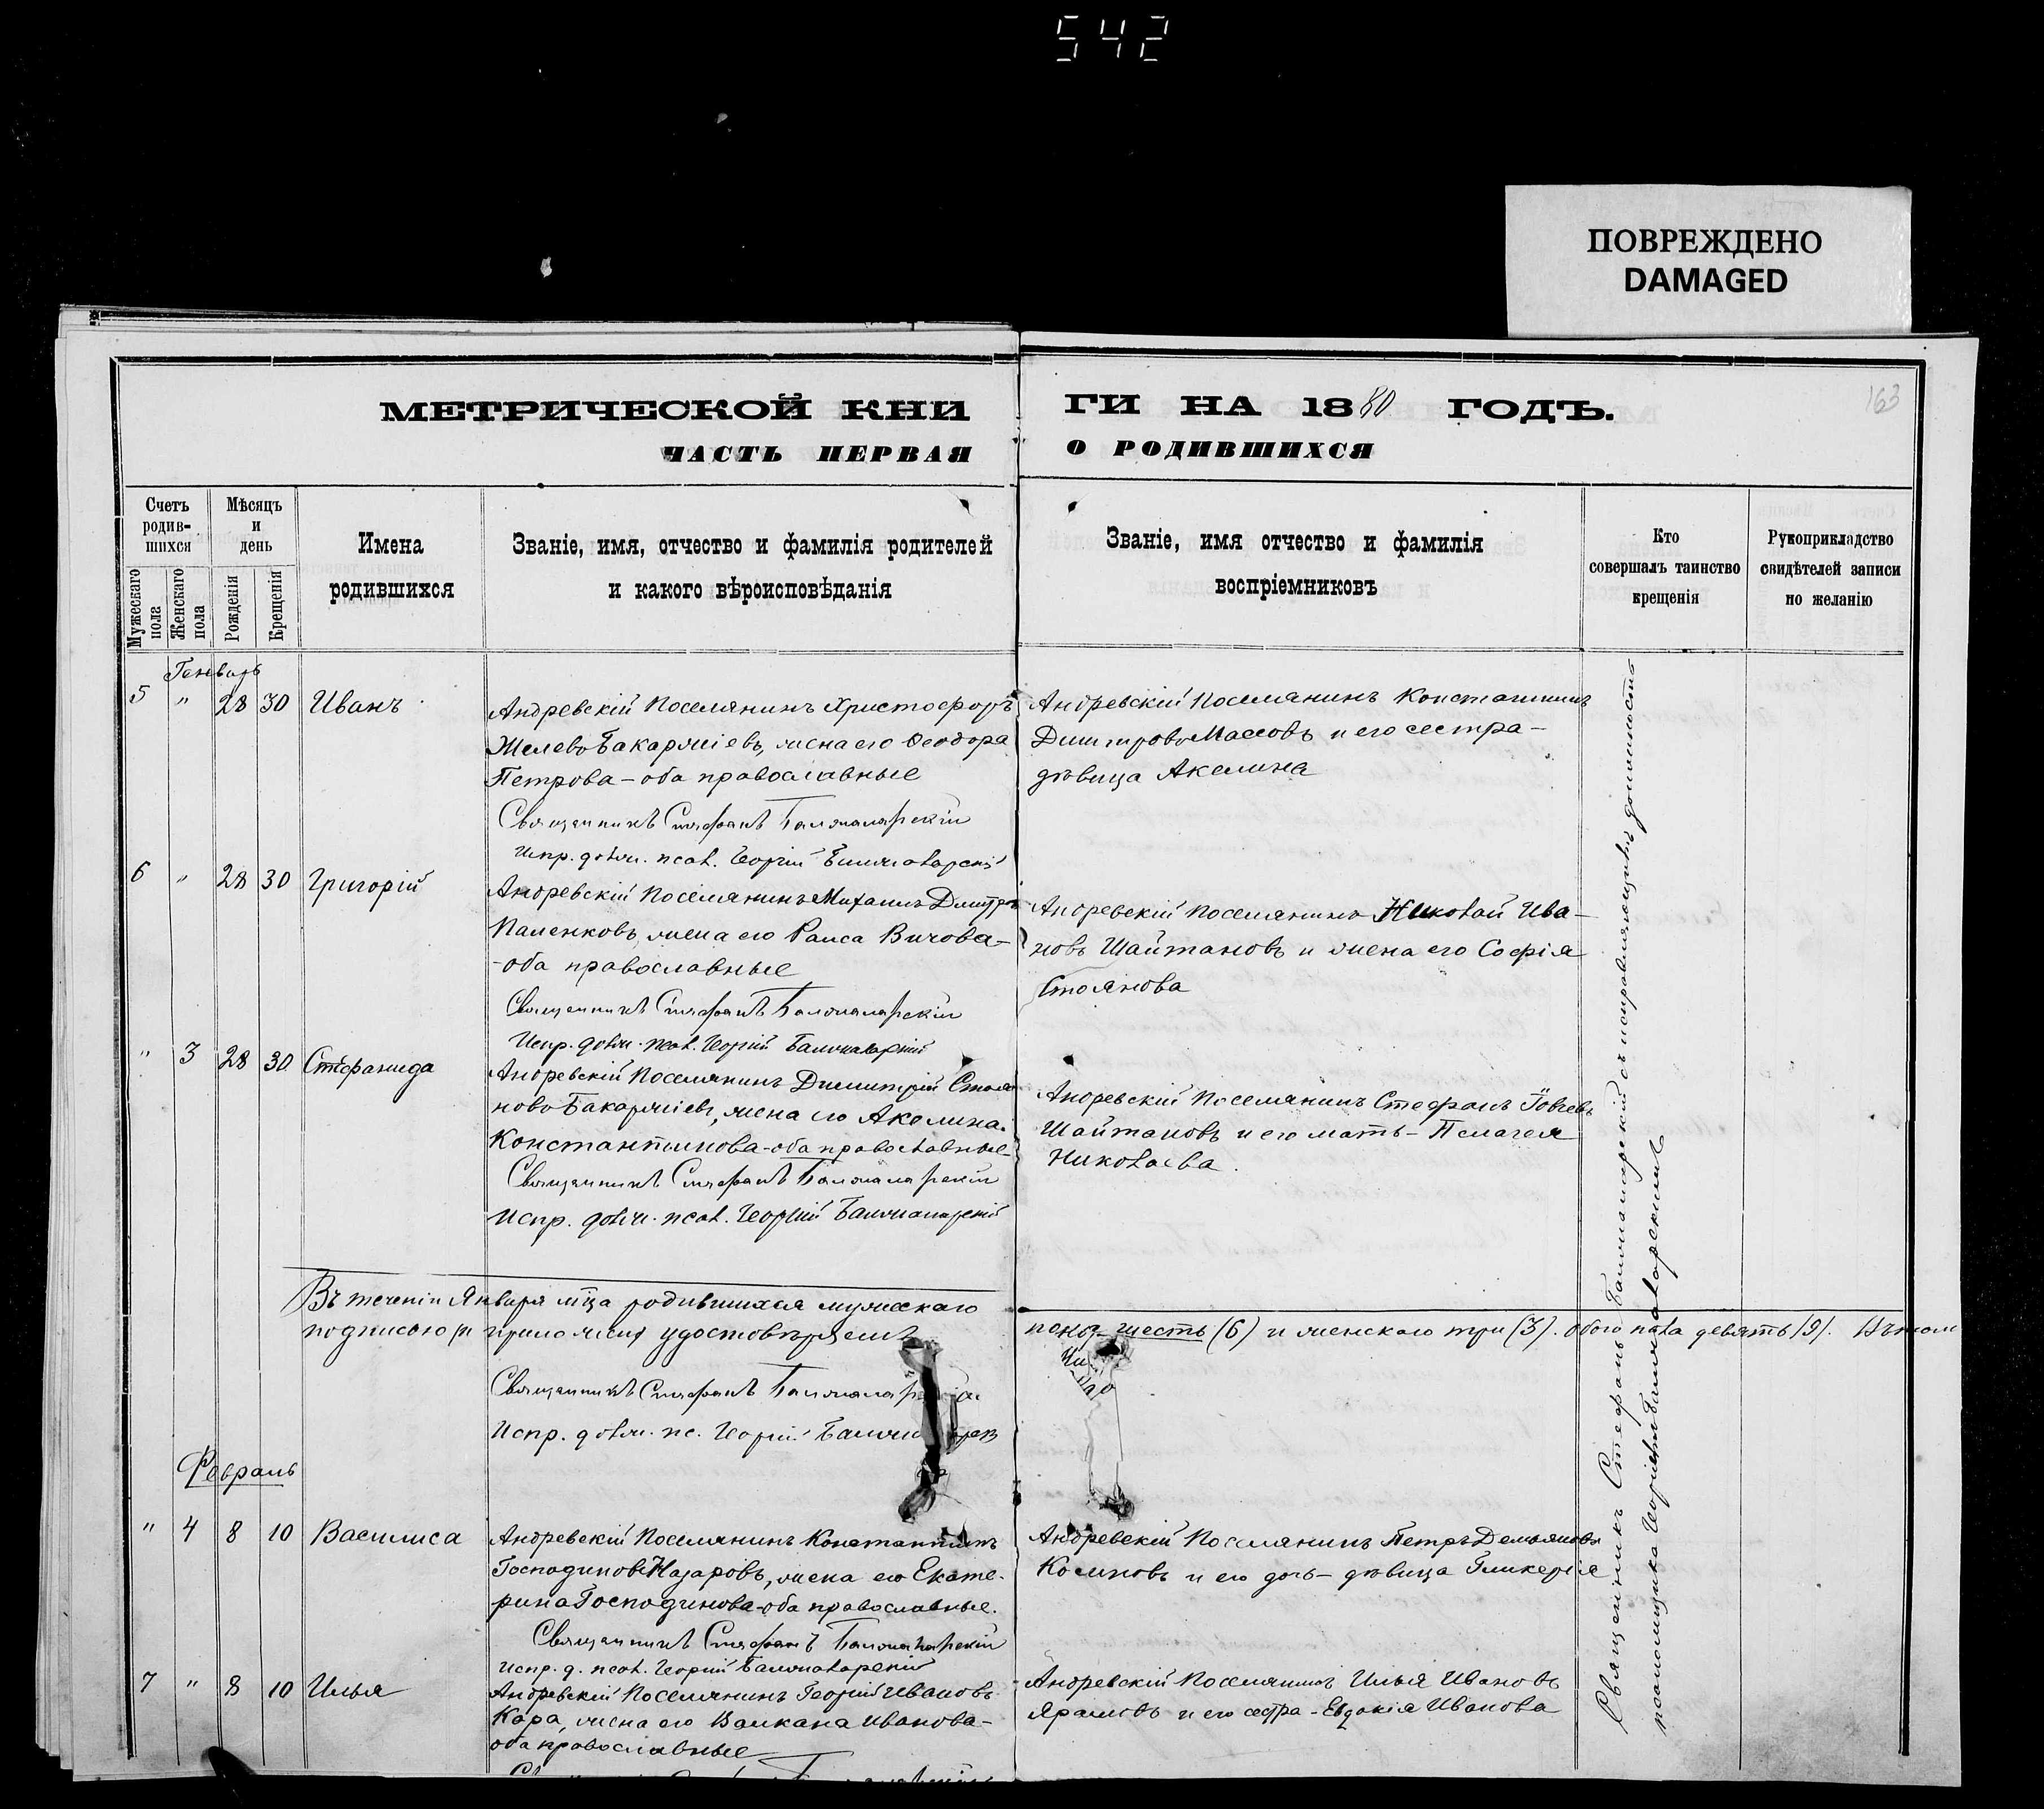 542
ПОВРЕЖДЕНО
DAMAGED
163
МЕТРИЧЕСКОЙ КНИ
ГИ НА 1880 ГОДЪ.
ЧАСТЬ ПЕРВАЯ
О РОДИВШИХСЯ
Счетъ
родив-
шихся
Мужескаго
пола
Женскаго
пола
Мѣсяцъ
и
день
Рожденія
Крещенія
Имена
родившихся
Званіе, имя, отчество и фамилія родителей
и какого вѣроисповѣданія
Званіе, имя отчество и фамилія
воспріемниковъ
Кто
совершалъ таинство
крещенія
Рукоприкладство
свидѣтелей записи
по желанію
Генварь
5 " 28 30 Иванъ
Андревскій Поселянинъ Христофоръ
Желевъ Бакаржіевъ, жена его Ѳеодора
Петрова – оба православные
Священникъ Стефанъ
Испр. долж. псал. Георгій
Андревскій Поселянинъ Константинъ
Димитровъ и его сестра –
дѣвица Акелина
6 " 28 30 Григорій
Андревскій Поселянинъ Михаилъ Дмитровъ
Паленковъ, жена его Раиса Вичова –
- оба православные
Священникъ Стефанъ
Испр. долж. псал. Георгій
Андревскій Поселянинъ Николай Ива-
новъ Шайтановъ и жена его Софія
Стоянова
" 3 28 30 Стефанида
Андревскій Поселянинъ Димитрій Стоя
новъ Бакаржіевъ, жена его Акелина
Константинова - оба православные
Священникъ Стефанъ
Испр. долж. псал. Георгій
Андревскій Поселянинъ Стефанъ
Шайтановъ и его мать – Пелагея
Николаева.
Въ теченіи Января мца родившихся мужескаго
пола – шесть (6) и женскаго три (3). Обого пола девять (9). Въ томъ
подписью удостовѣряемъ
Священникъ Стефанъ
Испр. долж. пс. Георгій
Февраль
" 4 8 10 Василиса
Андревскій Поселянинъ Константинъ
Господиновъ Назаровъ, жена его Екате-
рина Господинова - оба православные.
Священникъ Стефанъ
Испр. д. псал. Георгій
Андревскій Поселянинъ Петръ Демьяновъ
и его дочь – дѣвица Гликерія
7 " 8 10 Илья
Андревскій Поселянинъ Георгій Ивановъ
Кара, жена его Валкана Иванова –
оба православные
Андревскій Поселянинъ Илья Ивановъ
и его сестра - Евдокія Иванова
Священникъ Стефанъ съ исправляющимъ должность
псаломщика Георгіемъ